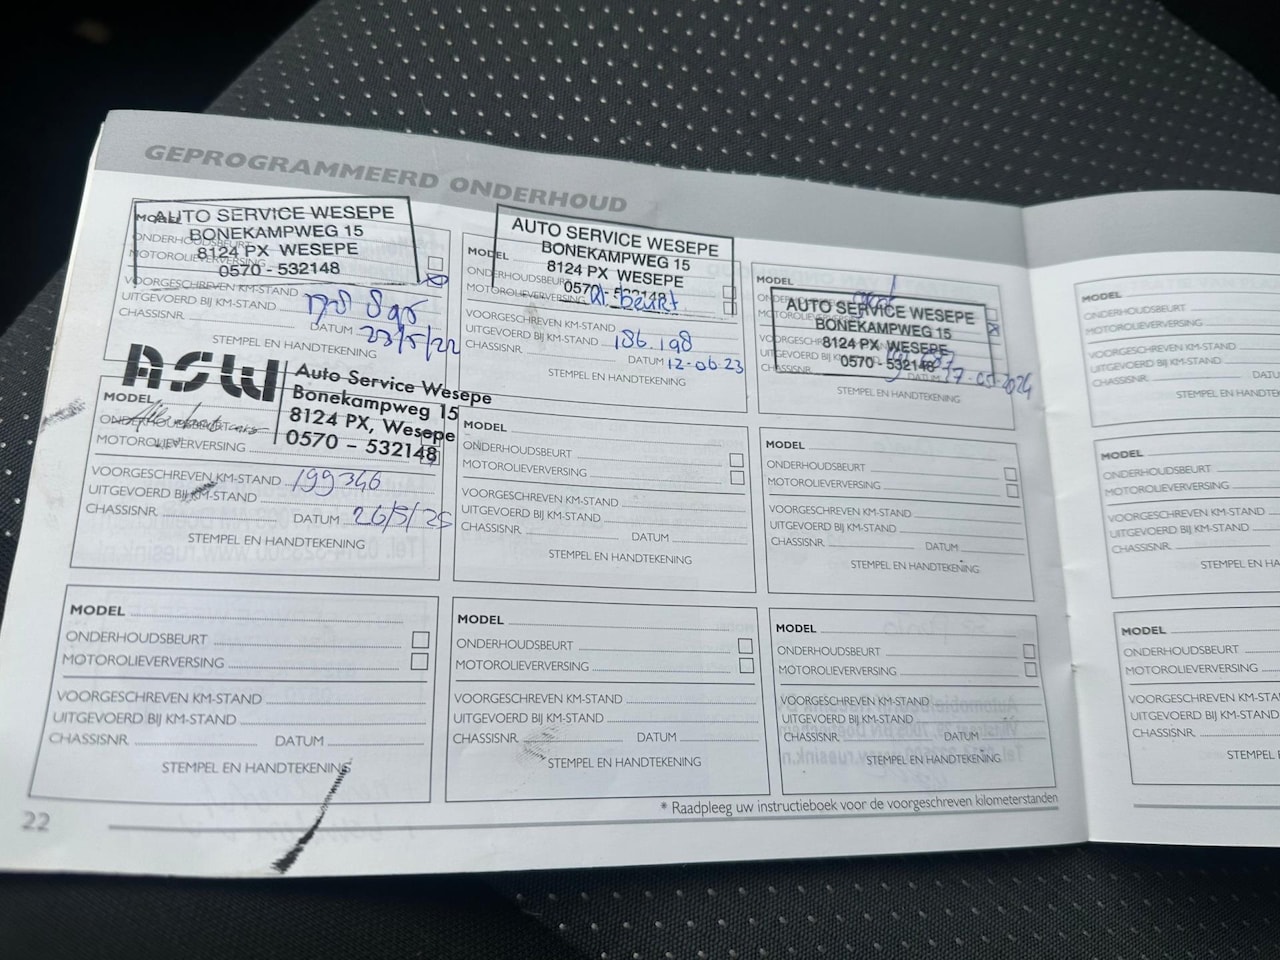 GEPROGRAMMEERD ONDERHOUD
AUTO SERVICE WESEPE
BONEKAMPWEG 15
8124 PX WESEPE
0570 - 532148
MODEL
ONDERHOUDSBEURT
MOTOROLIEVERVERSING
VOORGESCHREVEN KM-STAND
UITGEVOERD BIJ KM-STAND
CHASSISNR. DATUM 23/5/22
STEMPEL EN HANDTEKENING
AUTO SERVICE WESEPE
BONEKAMPWEG 15
8124 PX WESEPE
0570 - 532148
MODEL
ONDERHOUDSBEURT
MOTOROLIEVERVERSING Kl. beurt
VOORGESCHREVEN KM-STAND
UITGEVOERD BIJ KM-STAND 186.198
CHASSISNR. DATUM 12-06-23
STEMPEL EN HANDTEKENING
MODEL
AUTO SERVICE WESEPE
BONEKAMPWEG 15
8124 PX WESEPE
0570 - 532148
2024
STEMPEL EN HANDTEKENING
ASW
Auto Service Wesepe
Bonekampweg 15
8124 PX, Wesepe
0570 - 532148
MODEL
ONDERHOUDSBEURT
MOTOROLIEVERVERSING
VOORGESCHREVEN KM-STAND 199346
UITGEVOERD BIJ KM-STAND
CHASSISNR. DATUM 26/5/25
STEMPEL EN HANDTEKENING
MODEL
ONDERHOUDSBEURT
MOTOROLIEVERVERSING
VOORGESCHREVEN KM-STAND
UITGEVOERD BIJ KM-STAND
CHASSISNR. DATUM
STEMPEL EN HANDTEKENING
MODEL
ONDERHOUDSBEURT
MOTOROLIEVERVERSING
VOORGESCHREVEN KM-STAND
UITGEVOERD BIJ KM-STAND
CHASSISNR. DATUM
STEMPEL EN HANDTEKENING
MODEL
ONDERHOUDSBEURT
MOTOROLIEVERVERSING
VOORGESCHREVEN KM-STAND
UITGEVOERD BIJ KM-STAND
CHASSISNR. DATUM
STEMPEL EN HANDTEKENING
MODEL
ONDERHOUDSBEURT
MOTOROLIEVERVERSING
VOORGESCHREVEN KM-STAND
UITGEVOERD BIJ KM-STAND
CHASSISNR. DATUM
STEMPEL EN HANDTEKENING
MODEL
ONDERHOUDSBEURT
MOTOROLIEVERVERSING
VOORGESCHREVEN KM-STAND
UITGEVOERD BIJ KM-STAND
CHASSISNR. DATUM
STEMPEL EN HANDTEKENING
* Raadpleeg uw instructieboek voor de voorgeschreven kilometerstanden
22
MODEL
ONDERHOUDSBEURT
MOTOROLIEVERVERSING
VOORGESCHREVEN KM-STAND
UITGEVOERD BIJ KM-STAND
CHASSISNR. DATU
STEMPEL E
MODEL
ONDERHOUDSBEURT
MOTOROLIEVERVERSING
VOORGESCHREVEN KM-STAND
UITGEVOERD BIJ KM-STAND
CHASSISNR.
STEMPEL E
MODEL
ONDERHOUDSBEURT
MOTOROLIEVERVERSING
VOORGESCHREVEN KM-STA
UITGEVOERD BIJ KM-STAND
CHASSISNR.
STEMPEL E